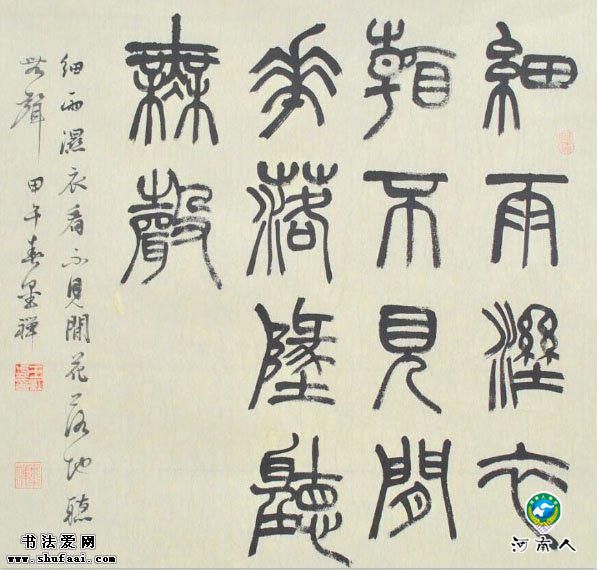 細雨溼衣
看不見閒
華落墬聽
無聲
細雨濕衣看不見閒花落地聽
無聲 甲午春墨禪
书法爱网
www.shufaai.com
河南人